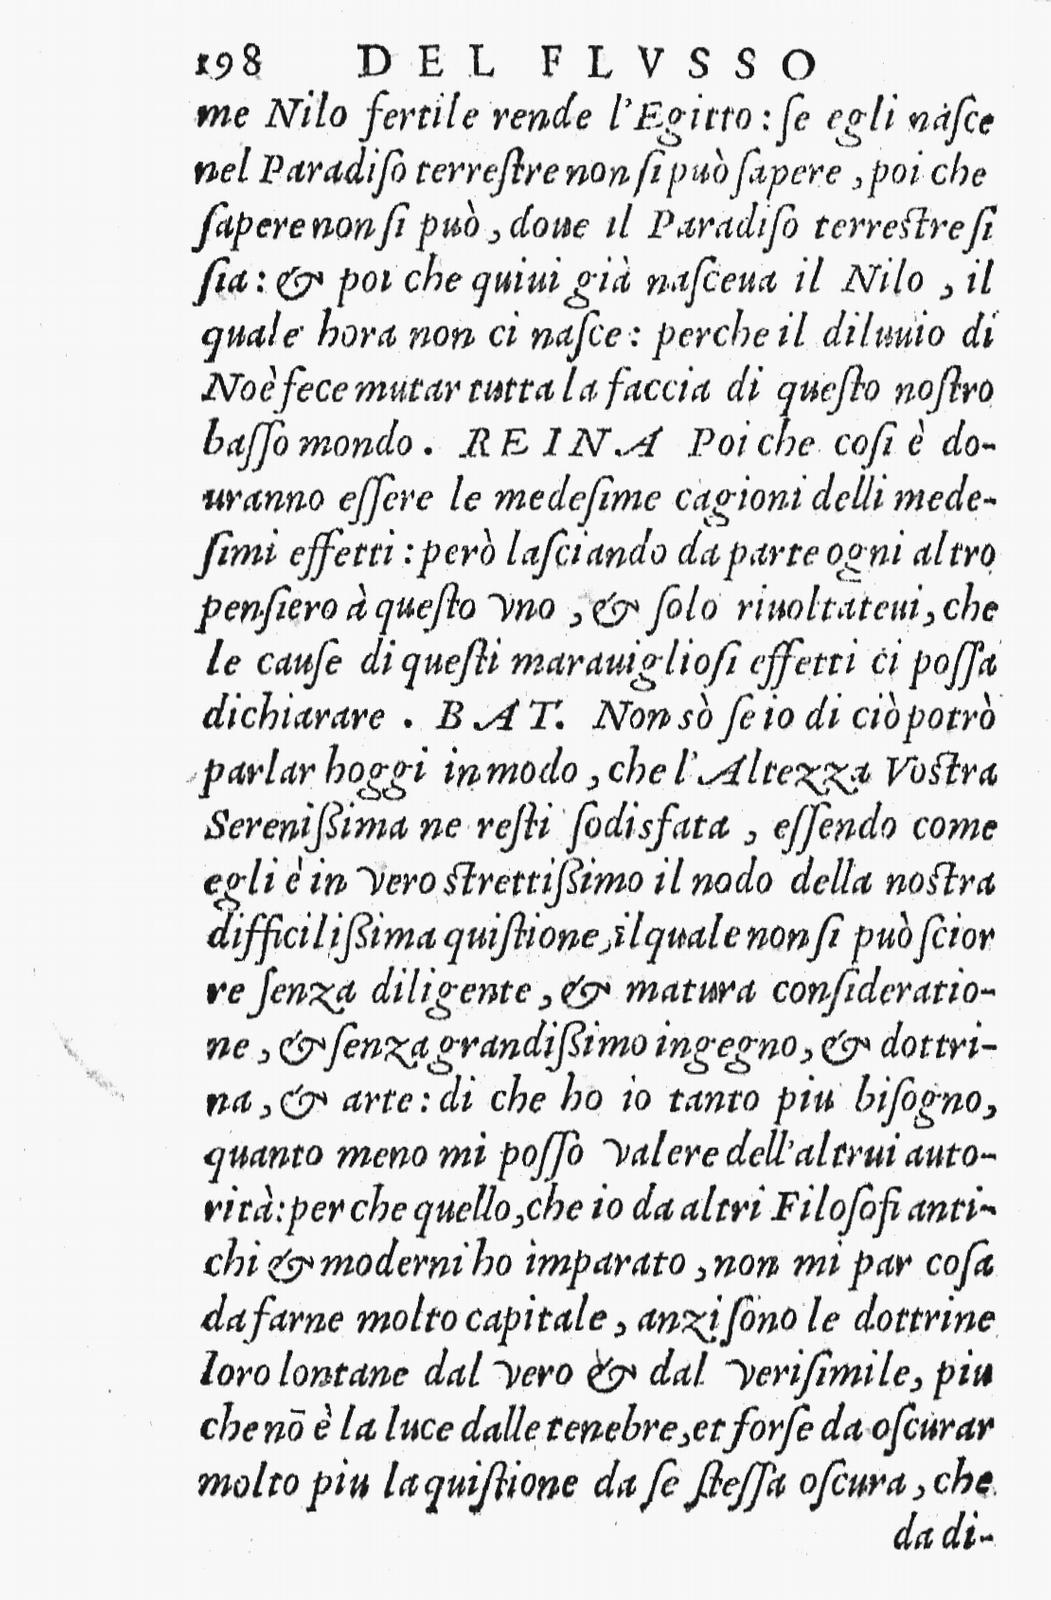 198 DEL FLVSSO
me Nilo fertile rende l'Egitto: ſe egli naſce
nel Paradiſo terreſtre non ſi può ſapere, poi che
ſapere non ſi può, doue il Paradiſo terreſtre ſi
ſia: & poi che quiui già naſceua il Nilo, il
quale hora non ci naſce: perche il diluuio di
Noè fece mutar tutta la faccia di queſto noſtro
baſſo mondo. REINA Poi che coſi è do-
uranno eſſere le medeſime cagioni delli mede-
ſimi effetti: però laſciando da parte ogni altro
penſiero à queſto vno, & ſolo riuoltateui, che
le cauſe di queſti marauiglioſi effetti ci poſſa
dichiarare. BAT. Non sò ſe io di ciò potrò
parlar hoggi in modo, che l'Altezza Voſtra
Sereniſſima ne reſti ſodisfata, eſſendo come
egli è in vero ſtrettiſſimo il nodo della noſtra
difficiliſſima quiſtione, ilquale non ſi può ſcior
re ſenza diligente, & matura conſideratio-
ne, & ſenza grandiſſimo ingegno, & dottri-
na, & arte: di che ho io tanto piu biſogno,
quanto meno mi poſſo valere dell'altrui auto-
rità: perche quello, che io da altri Filoſofi anti-
chi & moderni ho imparato, non mi par coſa
da farne molto capitale, anzi ſono le dottrine
loro lontane dal vero & dal veriſimile, piu
che nō è la luce dalle tenebre, et forſe da oſcurar
molto piu la quiſtione da ſe ſteſſa oſcura, che
da di-